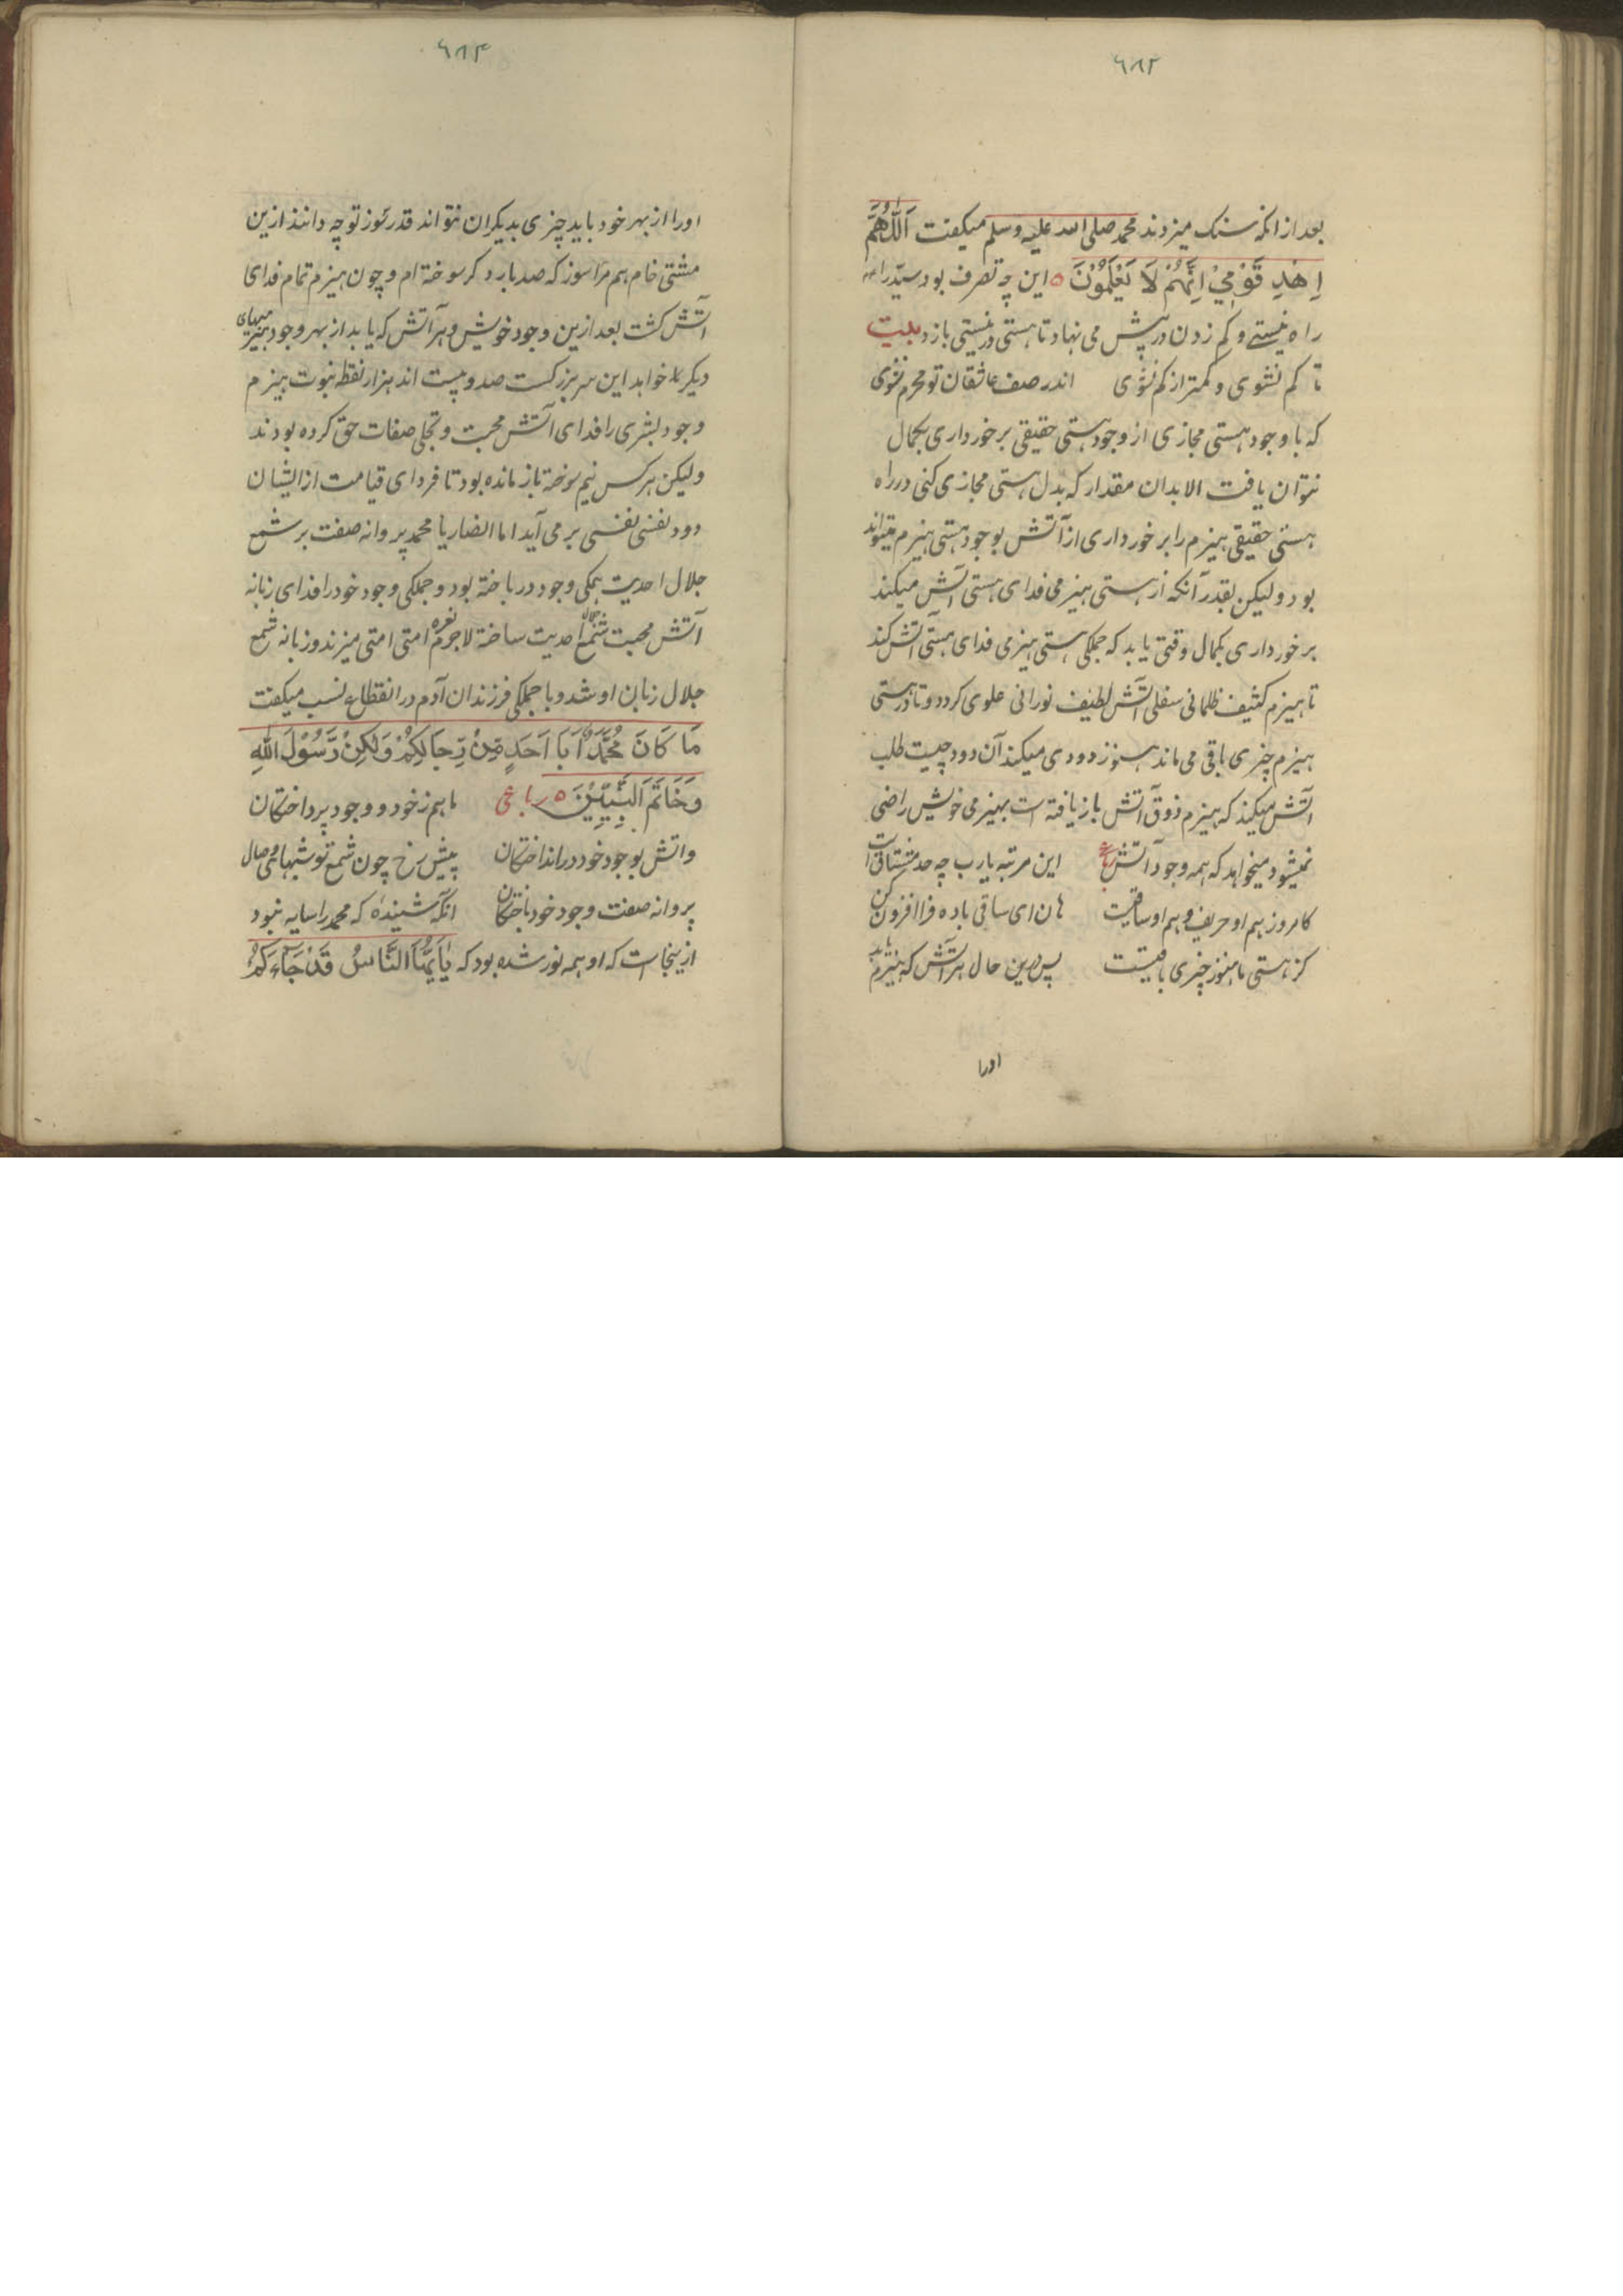 ٦٨٣
بعد ازانکه سنک میزدند محمد صلی الله علیه وسلم میکفت اَللّٰهُمَّ
اِهْدِ قَوْمِيْ اِنَّهُمْ لَا يَعْلَمُوْنَ ٥ این چه تصرف بود سیّد را
راه نیستے و کم زدن در پیش می نهاد تا هستی در نیستی بازد بیت
تا کم نشوی و کمتر از کم نشوی اندر صف عاشقان تو محرم نشوی
که با وجود هستی مجازی از وجود هستی حقیقی برخورداری بکمال
نتوان یافت الا بدان مقدار که بدل هستی مجازی کنی در راه
هستی حقیقی هیزم را برخورداری از آتش بوجود هستی هیزم میتواند
بود ولیکن بقدر آنکه از هستی هیزمی فدای هستی آتش میکند
برخورداری بکمال وقتی یابد که جملکی هستی هیزمی فدای هستی آتش کند
تا هیزم کثیف ظلمانی سفلی آتش لطیف نورانی علوی کردد و تا در هستی
هیزم چیزی باقی می ماند هنوز دودی میکند آن دود چیست طلب
آتش میکند که هیزم ذوق آتش باز یافته است بهیزمی خویش راضی
نمیشود میخواهد که همه وجود آتش این مرتبه یارب چه حد مشتاقی است
کامروز هم او حریف و هم او ساقیست هان ای ساقی باده فرا افزون کن
کز هستی ما هنوز چیزی باقیست پس درین حال هر آتش که هیزم یابد
اورا
٦٨٤
اورا از بهر خود باید چیزی بدیکران نتواند قدر سوز تو چه دانند ازین
مشتی خام هم مرا سوز که صد بار دکر سوخته ام و چون هیزم تمام فدای
آتش کشت بعد ازین وجود خویش و هر آتش که یابد از بهر وجود هیزمهای
دیکر خواهد این سر بزرکست صد و بیست اند هزار نقطه نبوت هیزم
وجود بشری را فدای آتش محبت و تجلی صفات حق کرده بودند
ولیکن هر کس نیم سوخته باز مانده بود تا فردای قیامت از ایشان
دود نفسی نفسی بر می آید اما محمد پروانه صفت بر شمع
جلال احدیت همکی وجود درباخته بود و جملکی وجود خود را فدای زبانه
آتش محبت شمع جلال احدیت ساخته لاجرم نعره امتی امتی میزند و زبانه شمع
جلال زبان او شد و با جملکی فرزندان آدم در انقطاع نسب میکفت
مَا كَانَ مُحَمَّدٌ اَبَا اَحَدٍ مِّنْ رِّجَالِكُمْ وَلٰكِنْ رَّسُوْلَ اللّٰهِ
وَخَاتَمَ النَّبِيِّيْنَ ٥ رباعی ما هم ز خود و وجود پرداختکان
واتش بوجود خود در انداختکان پیش رخ چون شمع تو شبهای وصال
پروانه صفت وجود خود باختکان انکه شنیدهٔ که محمد را سایه نبود
ازینجاست که او همه نور شده بود که یٰاَیُّهَا النَّاسُ قَدْ جَآءَكُمْ